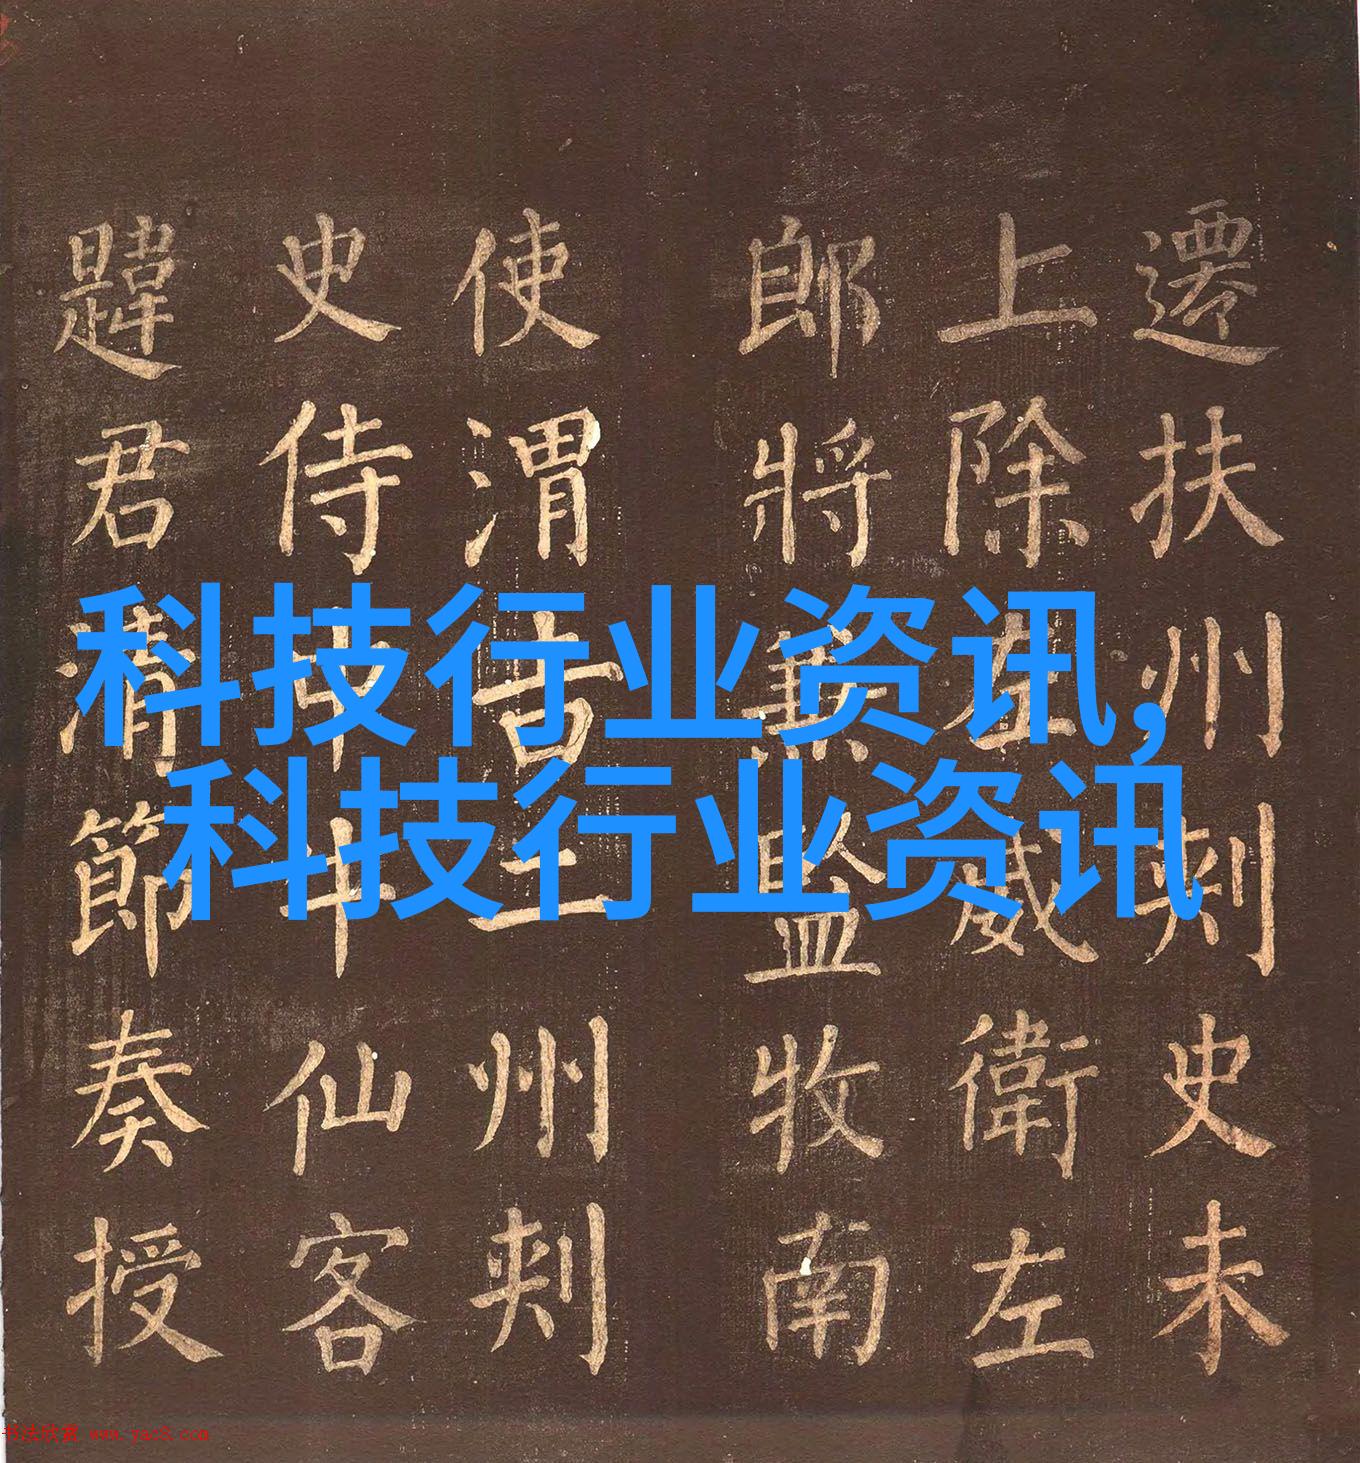 科技行业资讯,
科技行业资讯
遷扶州刺史未
上除左威衛左
郎將兼監牧南
使渭吉三州刺
史侍中牛仙客
韙君清節奏授
书法欣赏 www.yac8.com